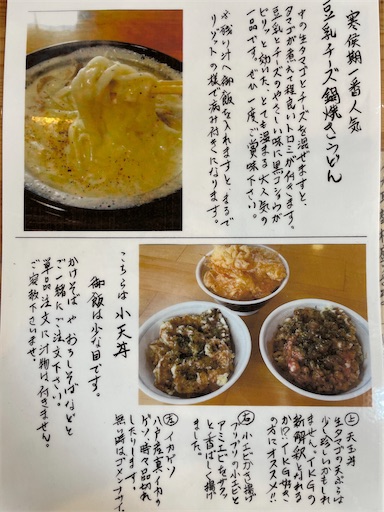 寒侯期一番人気
豆乳チーズ鍋焼きうどん
中の生タマゴとチーズを混ぜますと、
タマゴが煮えて程良いトロミが付きます。
豆乳とチーズのやさしい味に黒コショウが
ピリッと効いた、とても温まる大人気の
一品です。ぜひ一度ご賞味下さい。
※残り汁に御飯を入れますと、まるで
リゾットの様で病み付きになります。
こちらは小天丼
御飯は少な目です。
かけそばやおろしそばなどと
ご一緒にご注文下さい。
単品注文に汁物は付きません。
ご容赦下さいませ。
上 天玉丼
生タマゴの天ぷらは
少し珍しいかもしれ
ません。TKGの
新解釈と成れる
か!? TKG好き
の方にオススメ!!
右 小エビかき揚げ
プリプリの小エビと
アミエビをサクッ
と香ばしく揚げ
ました。
左 イカゲソ
八戸産真イカの
ゲソ。時々品切れ
したりします。
無い時はゴメンナサイ。